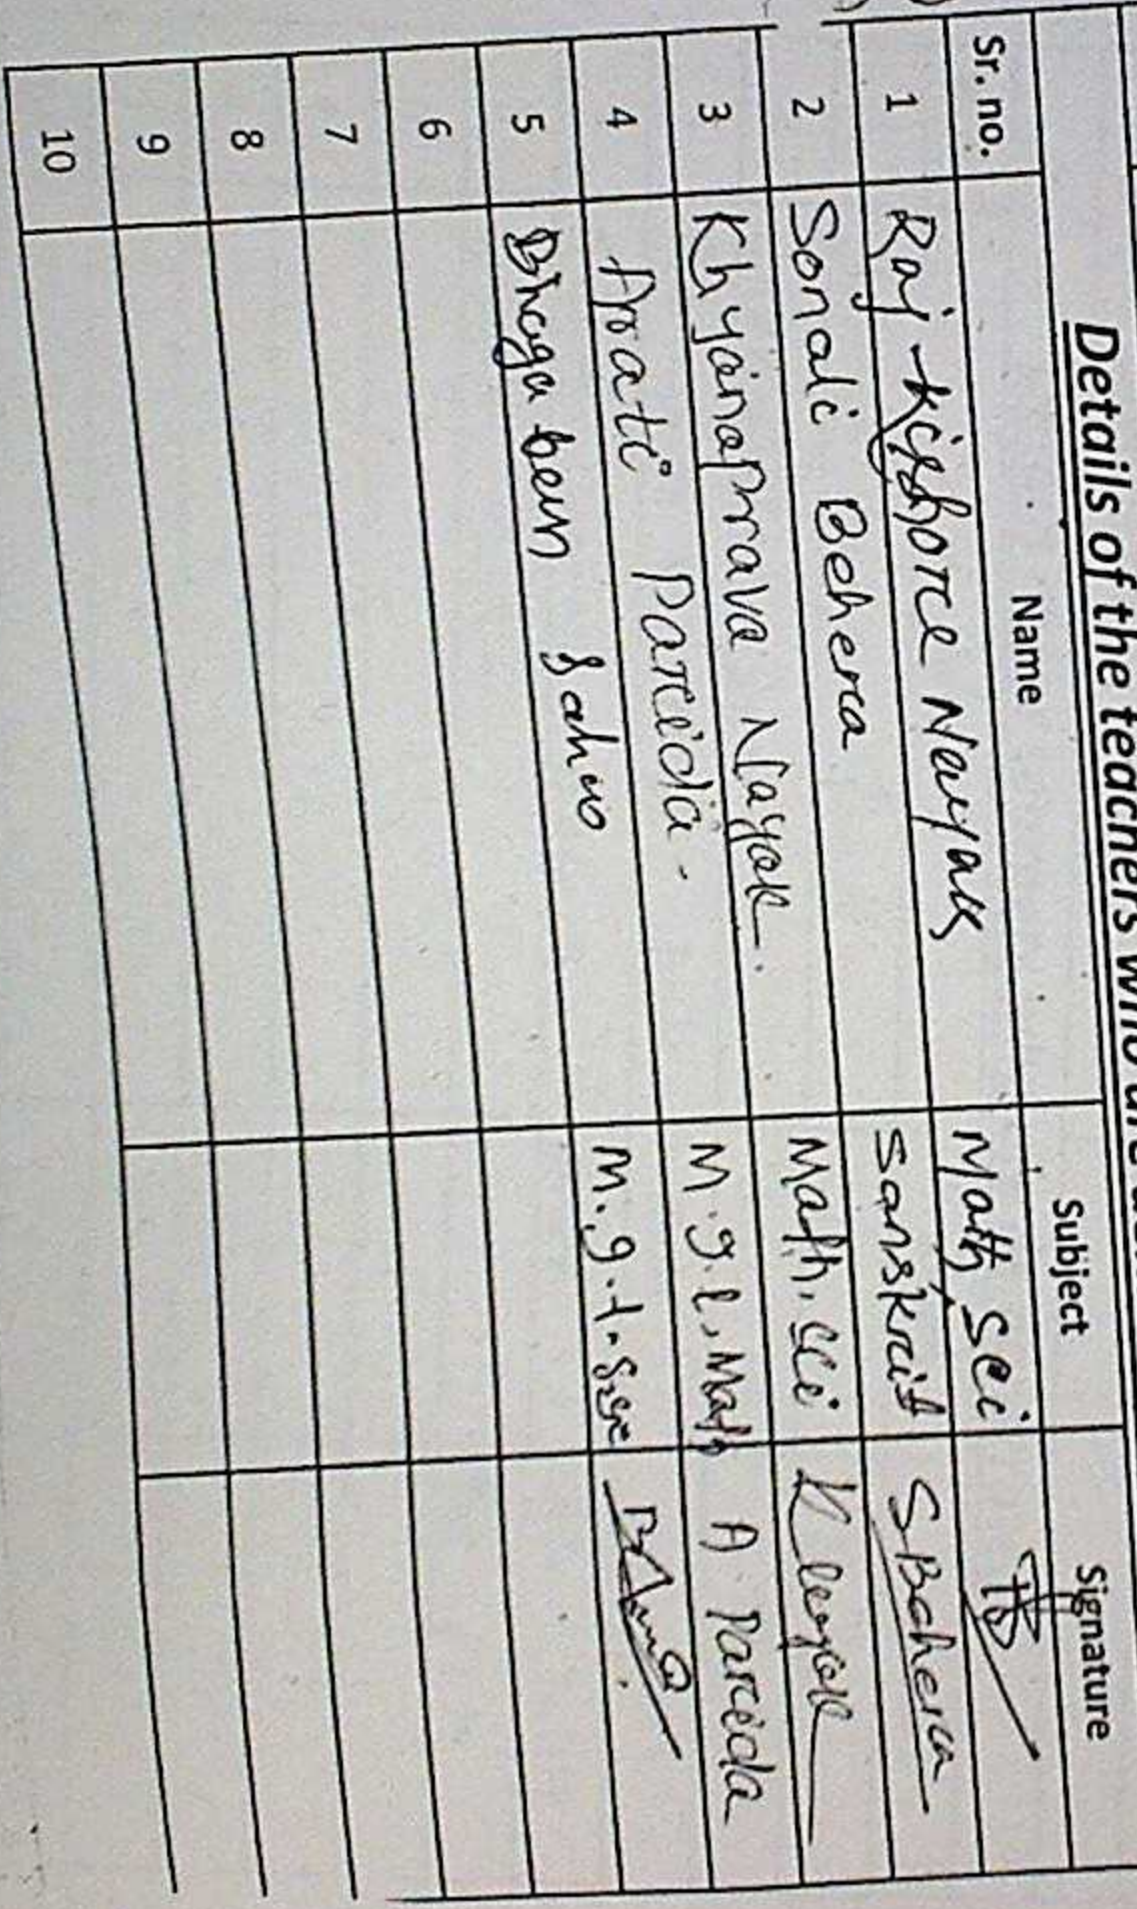 Details of the teachers who are
Sr. no. Name Subject Signature
1 Raj Kishore Nayak Math Sci
2 Sonali Behera Sanskrit S Behera
3 Khyanaprava Nayak. Math, Sci K Nayak
4 Arati Parida. M.g.l, Math A Parida
5 Bhagaban Sahu M.g.l.
6
7
8
9
10